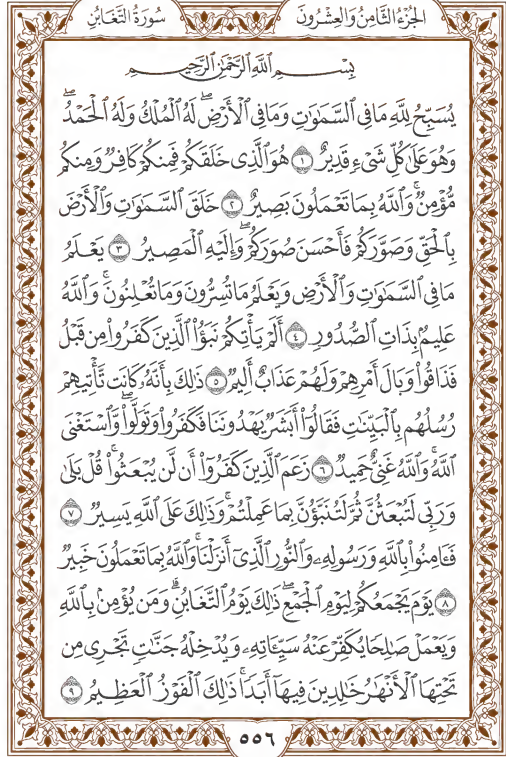 سُورَةُ التَّغَابُنِ الجُزْءُ الثَّامِنُ وَالعِشْرُونَ
بِسْمِ ٱللَّهِ ٱلرَّحْمَٰنِ ٱلرَّحِيمِ
يُسَبِّحُ لِلَّهِ مَا فِي ٱلسَّمَٰوَٰتِ وَمَا فِي ٱلْأَرْضِۖ لَهُ ٱلْمُلْكُ وَلَهُ ٱلْحَمْدُۖ
وَهُوَ عَلَىٰ كُلِّ شَيْءٍ قَدِيرٌ ١ هُوَ ٱلَّذِي خَلَقَكُمْ فَمِنكُمْ كَافِرٌ وَمِنكُم
مُّؤْمِنٌۚ وَٱللَّهُ بِمَا تَعْمَلُونَ بَصِيرٌ ٢ خَلَقَ ٱلسَّمَٰوَٰتِ وَٱلْأَرْضَ
بِٱلْحَقِّ وَصَوَّرَكُمْ فَأَحْسَنَ صُوَرَكُمْۖ وَإِلَيْهِ ٱلْمَصِيرُ ٣ يَعْلَمُ
مَا فِي ٱلسَّمَٰوَٰتِ وَٱلْأَرْضِ وَيَعْلَمُ مَا تُسِرُّونَ وَمَا تُعْلِنُونَۚ وَٱللَّهُ
عَلِيمٌۢ بِذَاتِ ٱلصُّدُورِ ٤ أَلَمْ يَأْتِكُمْ نَبَؤُاْ ٱلَّذِينَ كَفَرُواْ مِن قَبْلُ
فَذَاقُواْ وَبَالَ أَمْرِهِمْ وَلَهُمْ عَذَابٌ أَلِيمٌ ٥ ذَٰلِكَ بِأَنَّهُۥ كَانَت تَّأْتِيهِمْ
رُسُلُهُم بِٱلْبَيِّنَٰتِ فَقَالُوٓاْ أَبَشَرٌ يَهْدُونَنَا فَكَفَرُواْ وَتَوَلَّواْۖ وَّٱسْتَغْنَى
ٱللَّهُۚ وَٱللَّهُ غَنِيٌّ حَمِيدٌ ٦ زَعَمَ ٱلَّذِينَ كَفَرُوٓاْ أَن لَّن يُبْعَثُواْۚ قُلْ بَلَىٰ
وَرَبِّي لَتُبْعَثُنَّ ثُمَّ لَتُنَبَّؤُنَّ بِمَا عَمِلْتُمْۚ وَذَٰلِكَ عَلَى ٱللَّهِ يَسِيرٌ ٧
فَـَٔامِنُواْ بِٱللَّهِ وَرَسُولِهِۦ وَٱلنُّورِ ٱلَّذِيٓ أَنزَلْنَاۚ وَٱللَّهُ بِمَا تَعْمَلُونَ خَبِيرٌ
٨ يَوْمَ يَجْمَعُكُمْ لِيَوْمِ ٱلْجَمْعِۖ ذَٰلِكَ يَوْمُ ٱلتَّغَابُنِۗ وَمَن يُؤْمِنۢ بِٱللَّهِ
وَيَعْمَلْ صَٰلِحًا يُكَفِّرْ عَنْهُ سَيِّـَٔاتِهِۦ وَيُدْخِلْهُ جَنَّٰتٍ تَجْرِي مِن
تَحْتِهَا ٱلْأَنْهَٰرُ خَٰلِدِينَ فِيهَآ أَبَدًاۚ ذَٰلِكَ ٱلْفَوْزُ ٱلْعَظِيمُ ٩
٥٥٦